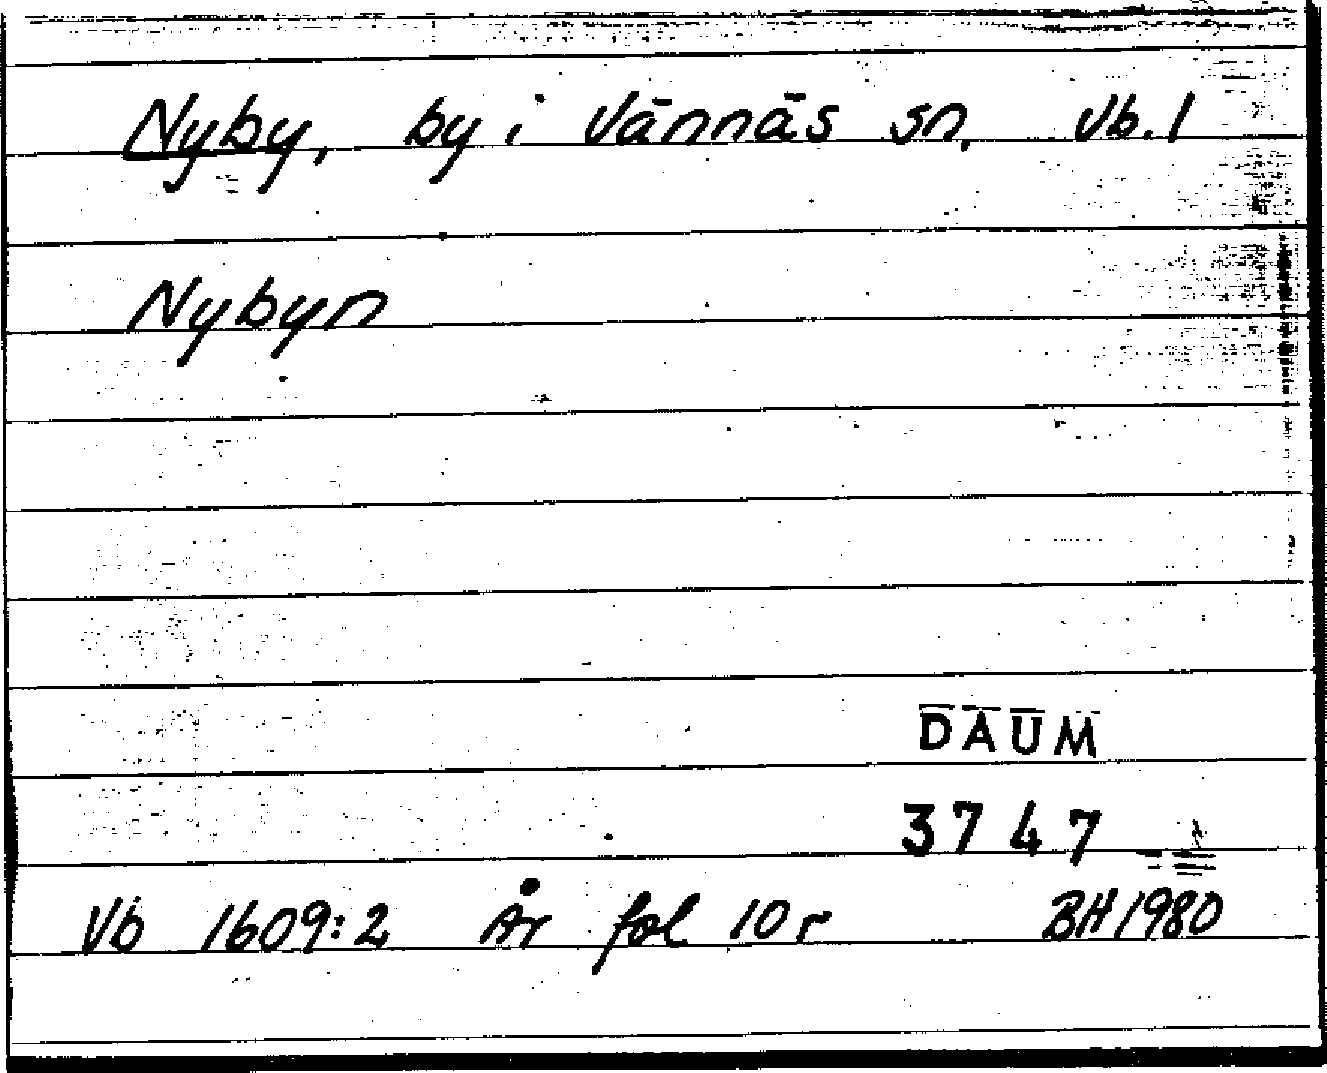 Nyby, by i Vännäs sn, Vb.l
Nybyn
DAUM
3747
Vb 1609:2 År fol 10 r BH 1980